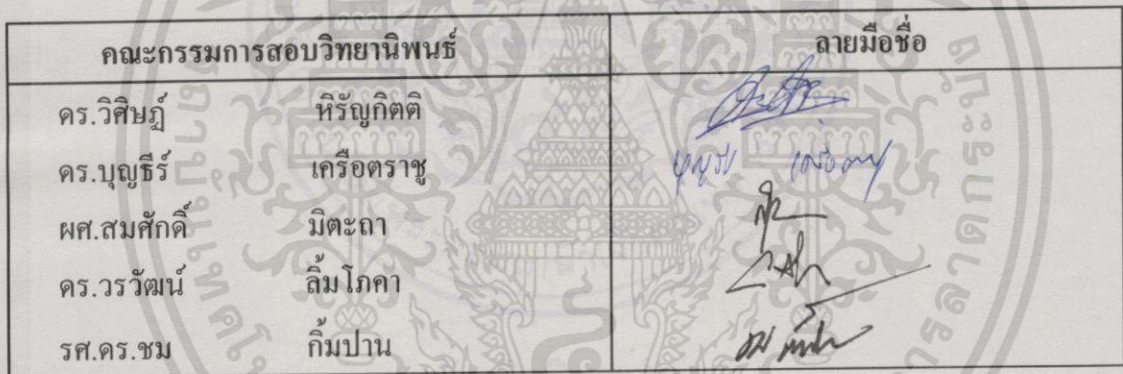 คณะกรรมการสอบวิทยานิพนธ์ ลายมือชื่อ
ดร.วิศิษฏ์ หิรัญกิตติ
ดร.บุญธีร์ เครือตราชู
ผศ.สมศักดิ์ มิตะถา
ดร.วรวัฒน์ ลิ้มโภคา
รศ.ดร.ชม กิ้มปาน